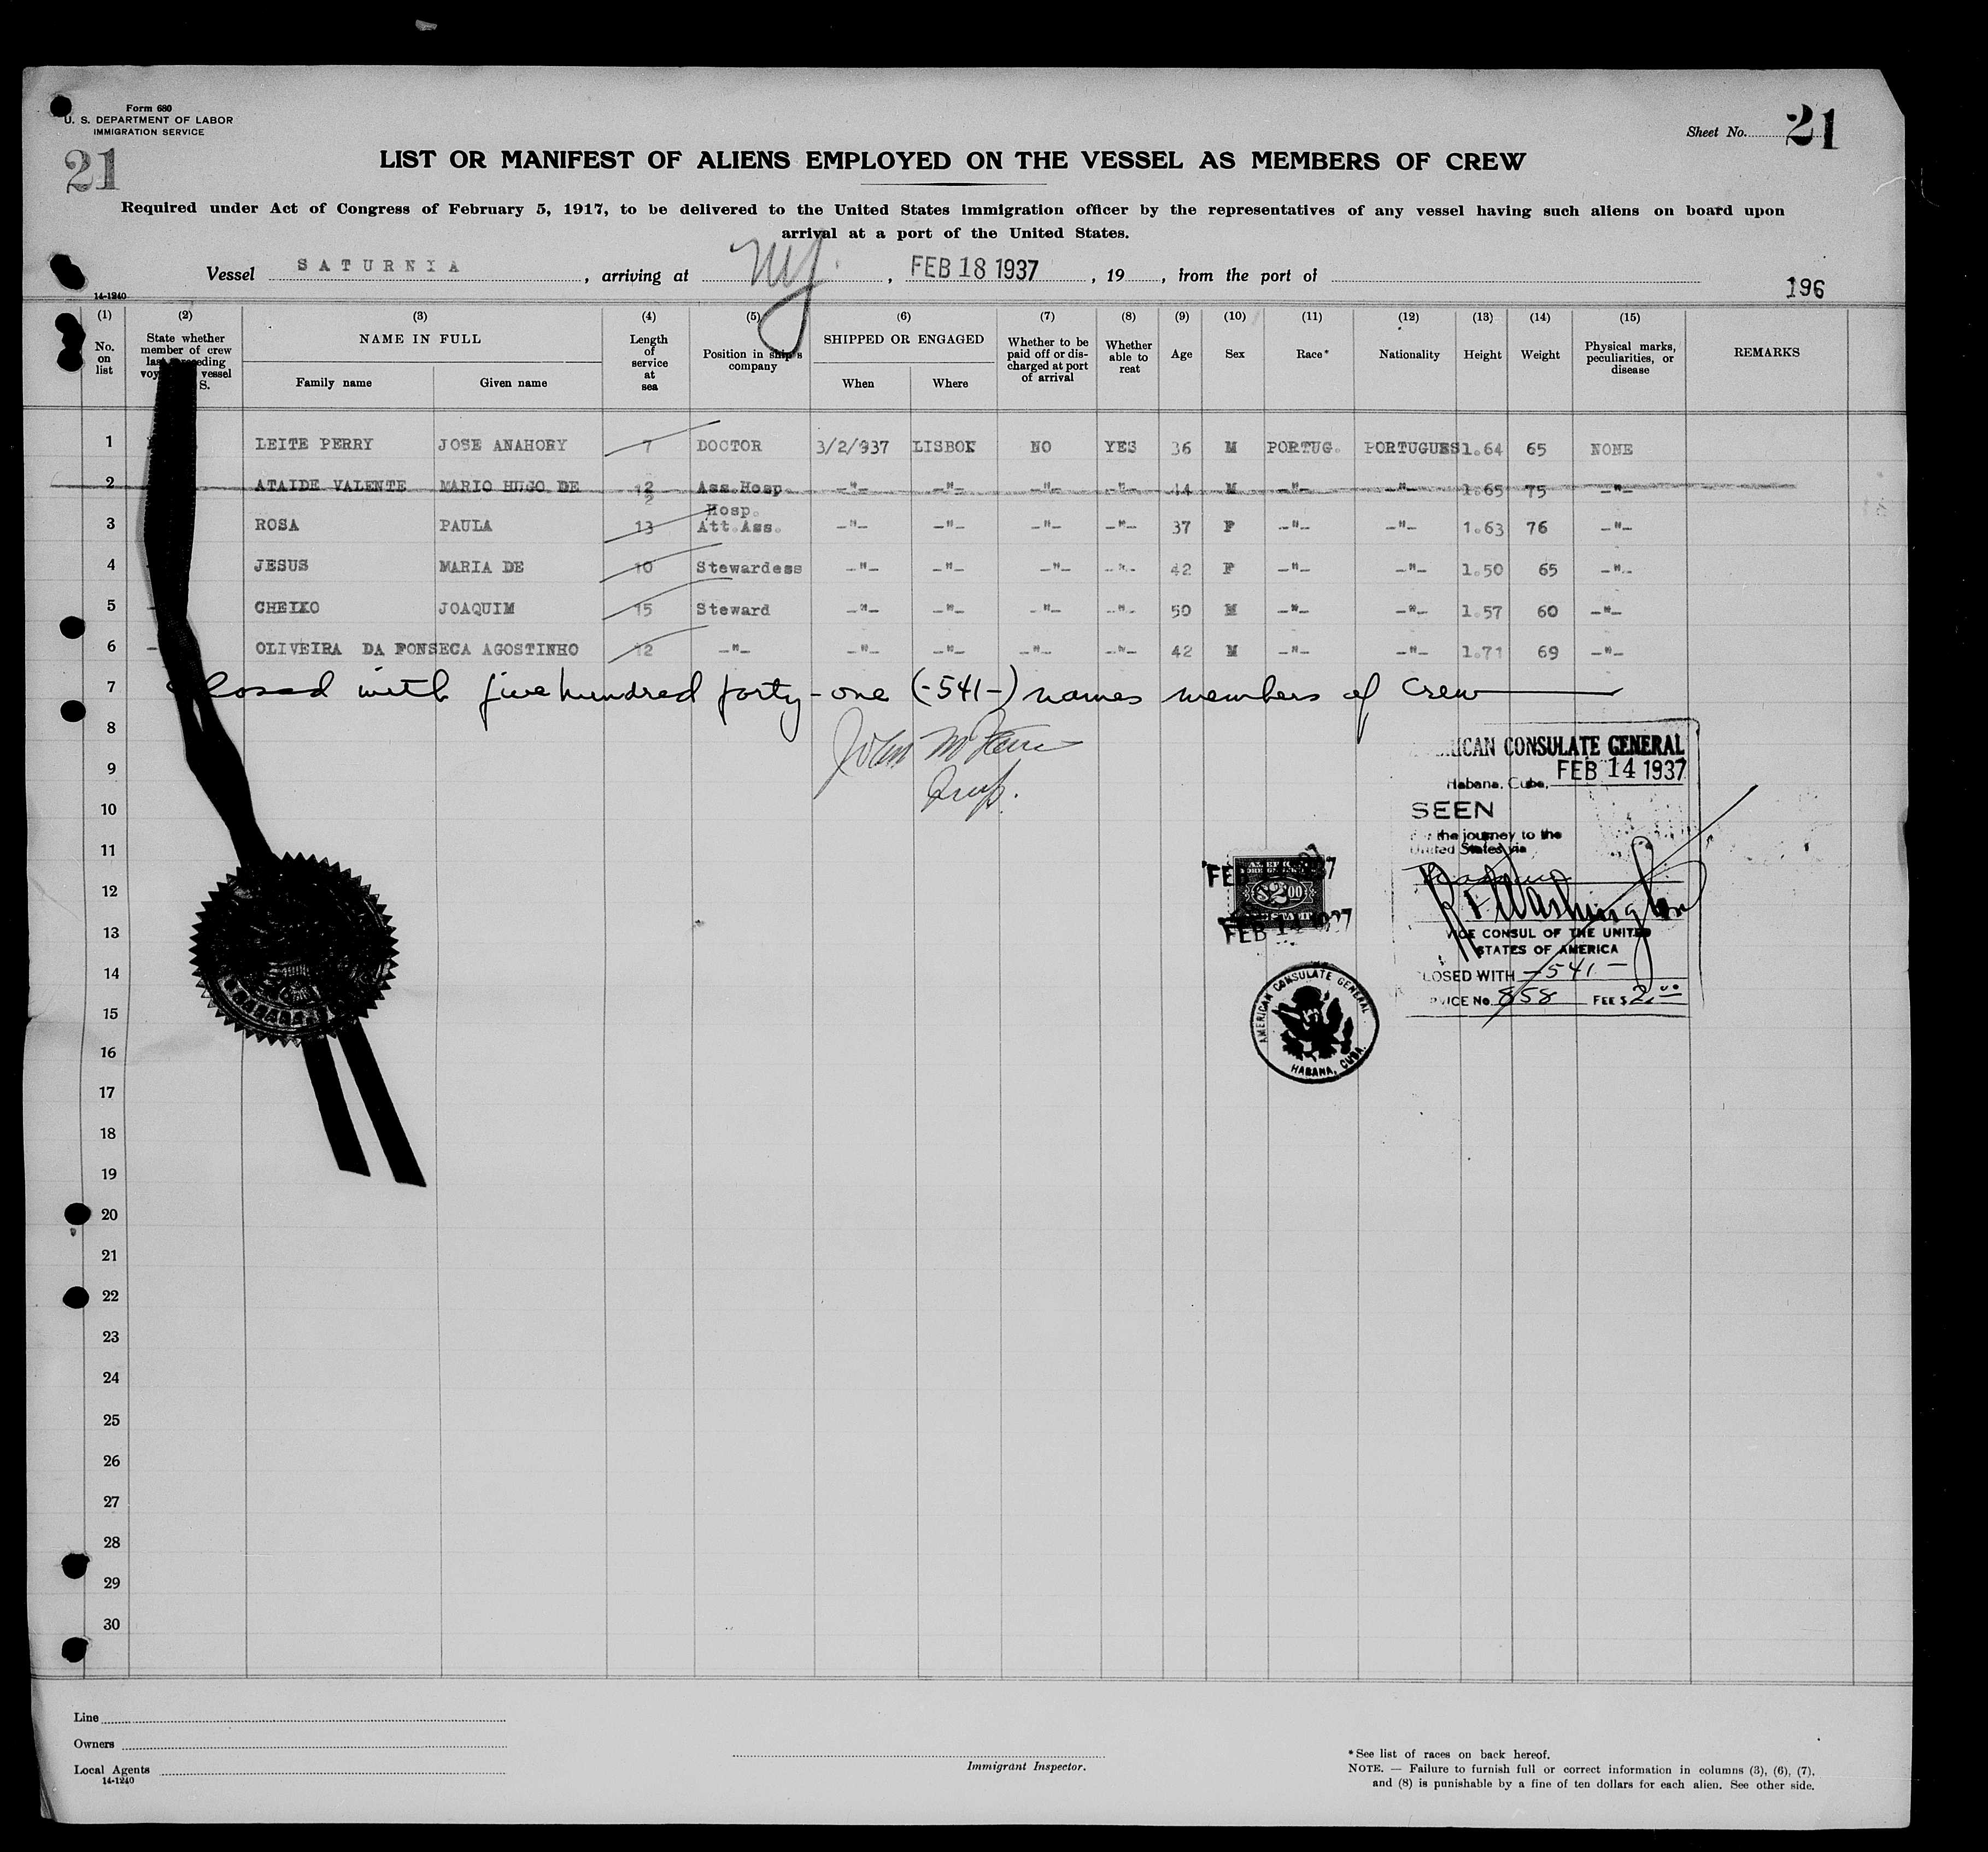 Form 680
U. S. DEPARTMENT OF LABOR
IMMIGRATION SERVICE
21
Sheet No. 21
LIST OR MANIFEST OF ALIENS EMPLOYED ON THE VESSEL AS MEMBERS OF CREW
Required under Act of Congress of February 5, 1917, to be delivered to the United States immigration officer by the representatives of any vessel having such aliens on board upon
arrival at a port of the United States.
Vessel SATURNIA, arriving at NY, FEB 18 1937, 19, from the port of
196
14-1240
(1) (2) (3) (4) (5) (6) (7) (8) (9) (10) (11) (12) (13) (14) (15)
No. on list
State whether member of crew
NAME IN FULL
Family name Given name
Length of service at sea
Position in ship's company
SHIPPED OR ENGAGED
When Where
Whether to be paid off or discharged at port of arrival
Whether able to reat
Age
Sex
Race*
Nationality
Height
Weight
Physical marks, peculiarities, or disease
REMARKS
1 LEITE PERRY JOSE ANAHORY 7 DOCTOR 3/2/937 LISBON NO YES 36 M PORTUG. PORTUGUES 1.64 65 NONE
2 ATAIDE VALENTE MARIO HUGO DE 12 Ass.Hosp. -"- -"- -"- -"- 44 M -"- -"- 1.65 75 -"-
3 ROSA PAULA 13 Hosp. Att.Ass. -"- -"- -"- -"- 37 F -"- -"- 1.63 76 -"-
4 JESUS MARIA DE 10 Stewardess -"- -"- -"- -"- 42 F -"- -"- 1.50 65 -"-
5 CHEIKO JOAQUIM 15 Steward -"- -"- -"- -"- 50 M -"- -"- 1.57 60 -"-
6 OLIVEIRA DA FONSECA AGOSTINHO 12 -"- -"- -"- -"- -"- 42 M -"- -"- 1.71 69 -"-
7 Closed with five hundred forty-one (-541-) names members of crew
8
9
10
11
12
13
14
15
16
17
18
19
20
21
22
23
24
25
26
27
28
29
30
John
Insp.
AMERICAN CONSULATE GENERAL
Habana, Cuba, FEB 14 1937
SEEN
the journey to the
United States via
R F Washington
VICE CONSUL OF THE UNITED
STATES OF AMERICA
CLOSED WITH -541-
SERVICE No. 858 FEE $ 2.00
$2.00
FEB 14 1937
AMERICAN CONSULATE GENERAL
HABANA, CUBA.
Line
Owners
Local Agents
14-1240
Immigrant Inspector.
*See list of races on back hereof.
NOTE. — Failure to furnish full or correct information in columns (3), (6), (7),
and (8) is punishable by a fine of ten dollars for each alien. See other side.